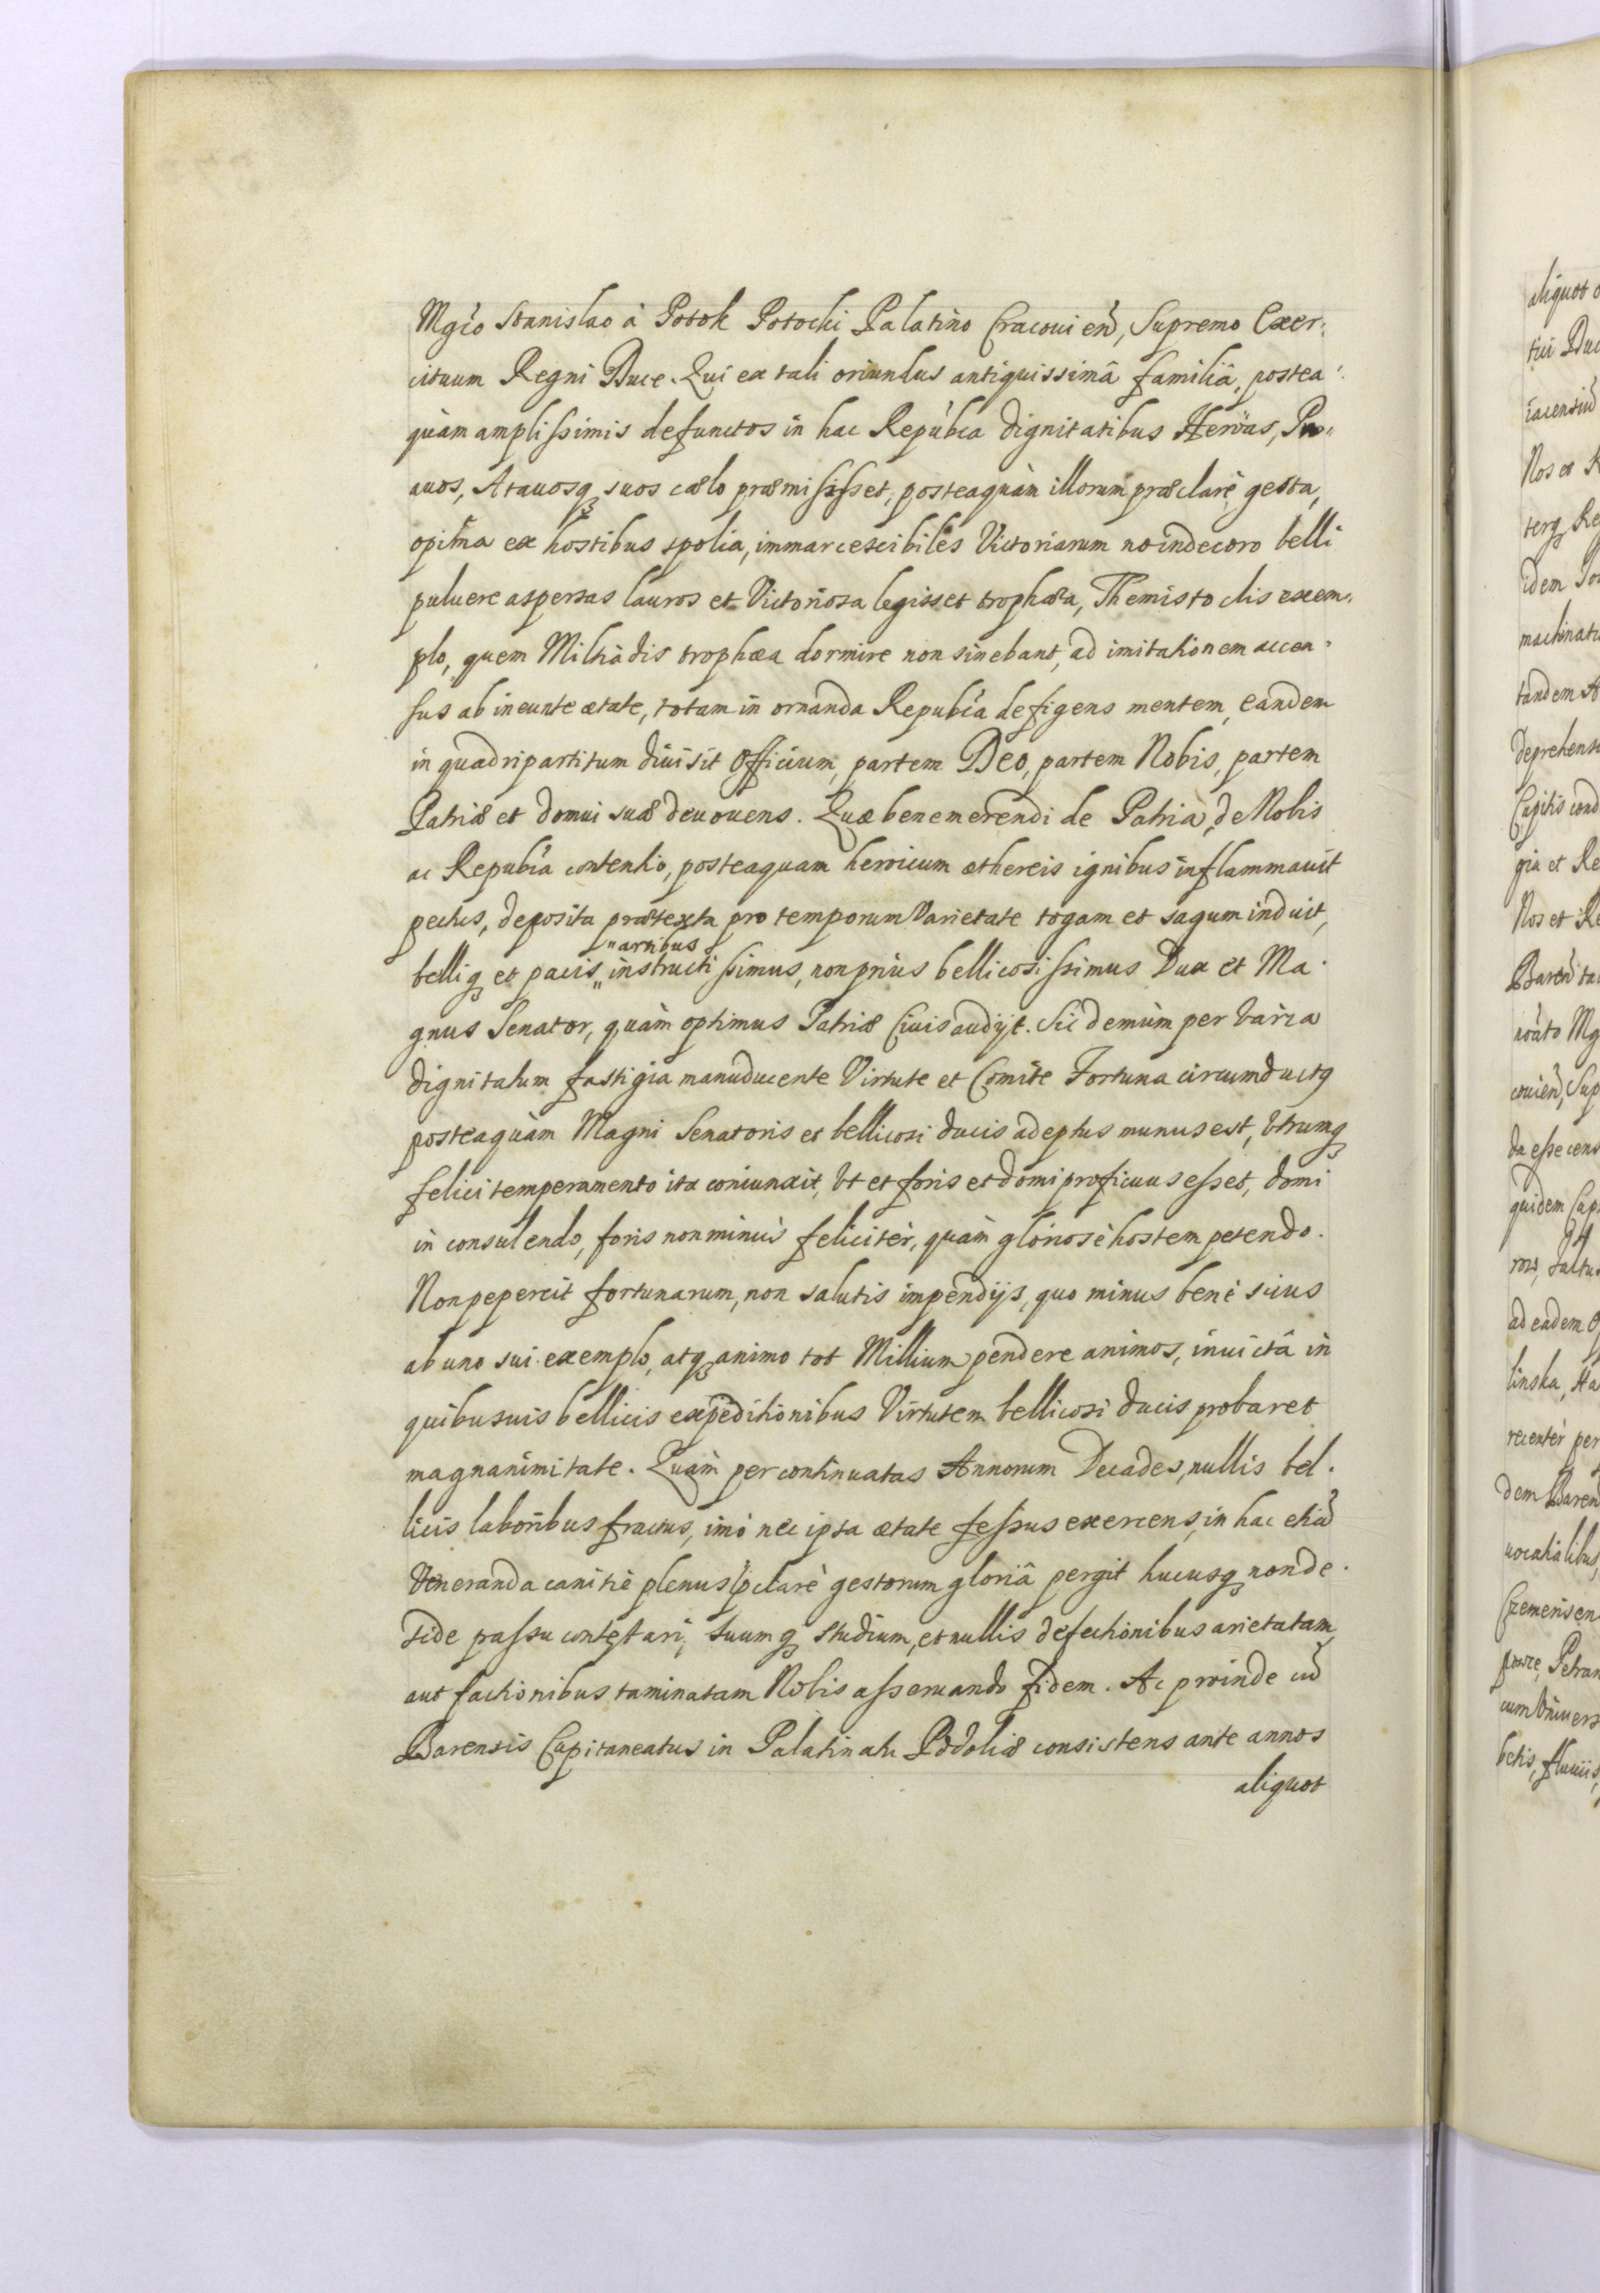 Mgco Stanislao à Potok Potocki Palatino Cracouien, Supremo Exer:
cituum Regni Duce. Qui ex tali oriundus antiquissimâ familiâ, postea:
quàm amplissimis defunctos in hac Repubca dignitatibus Heroas, Pro:
auos, Atauosq suos cælo præmisisset, posteaquàm illorum præclarè gesta,
opima ex hostibus spolia, immarcescibiles Victoriarum no indecoro belli
puluere aspersas lauros et Victoriosa legisset trophæa, Themistoclis exem:
plo, quem Miltiadis trophæa dormire non sinebant, ad imitationem accen:
sus ab ineunte ætate, totam in ornanda Repubca defigens mentem, eandem
in quadripartitum diuisit officium, partem Deo, partem Nobis, partem
Patriæ et domui suæ deuouens. Quæ benemerendi de Patria, de Nobis
ac Repubca contentio, posteaquam heroicum æthereis ignibus inflammauit
pectus, deposita prætexta pro temporum Varietate togam et sagum induit,
belliq et pacis "artibus instructissimus, non priùs bellicosissimus Dux et Ma:
gnus Senator, quàm optimus Patriæ Ciuis audijt. Sic demùm per varia
dignitatum fastigia manuducente Virtute et Comite Fortuna circumductg
posteaquàm Magni Senatoris et bellicosi ducis adeptus munus est, Vtrumq
felici temperamento ita coniunxit, Vt et foris et domi proficuus esset, domi
in consulendo, foris non minùs felicitèr, quàm gloriosè hostem petendo.
Non pepercit fortunarum, non salutis impendijs, quo minus benè scius
ab uno sui exemplo, atq animo tot Millium pendere animos, inuictâ in
quibusuis bellicis expeditionibus Virtutem bellicosi ducis probaret
magnanimitate. Quàm per continuatas Annorum Decades, nullis bel:
licis laboribus fractus, imò nec ipsa ætate fessus exercens, in hac etiã
Veneranda canitie plenus pclarè gestorum gloriâ pergit hucusq non de:
side passu contestari, suumq studium, et nullis defectionibus arietatam,
aut factionibus taminatam Nobis asseruando fidem. Ac proinde cũ
Barensis Capitaneatus in Palatinatu Podoliæ consistens ante annos
aliquot